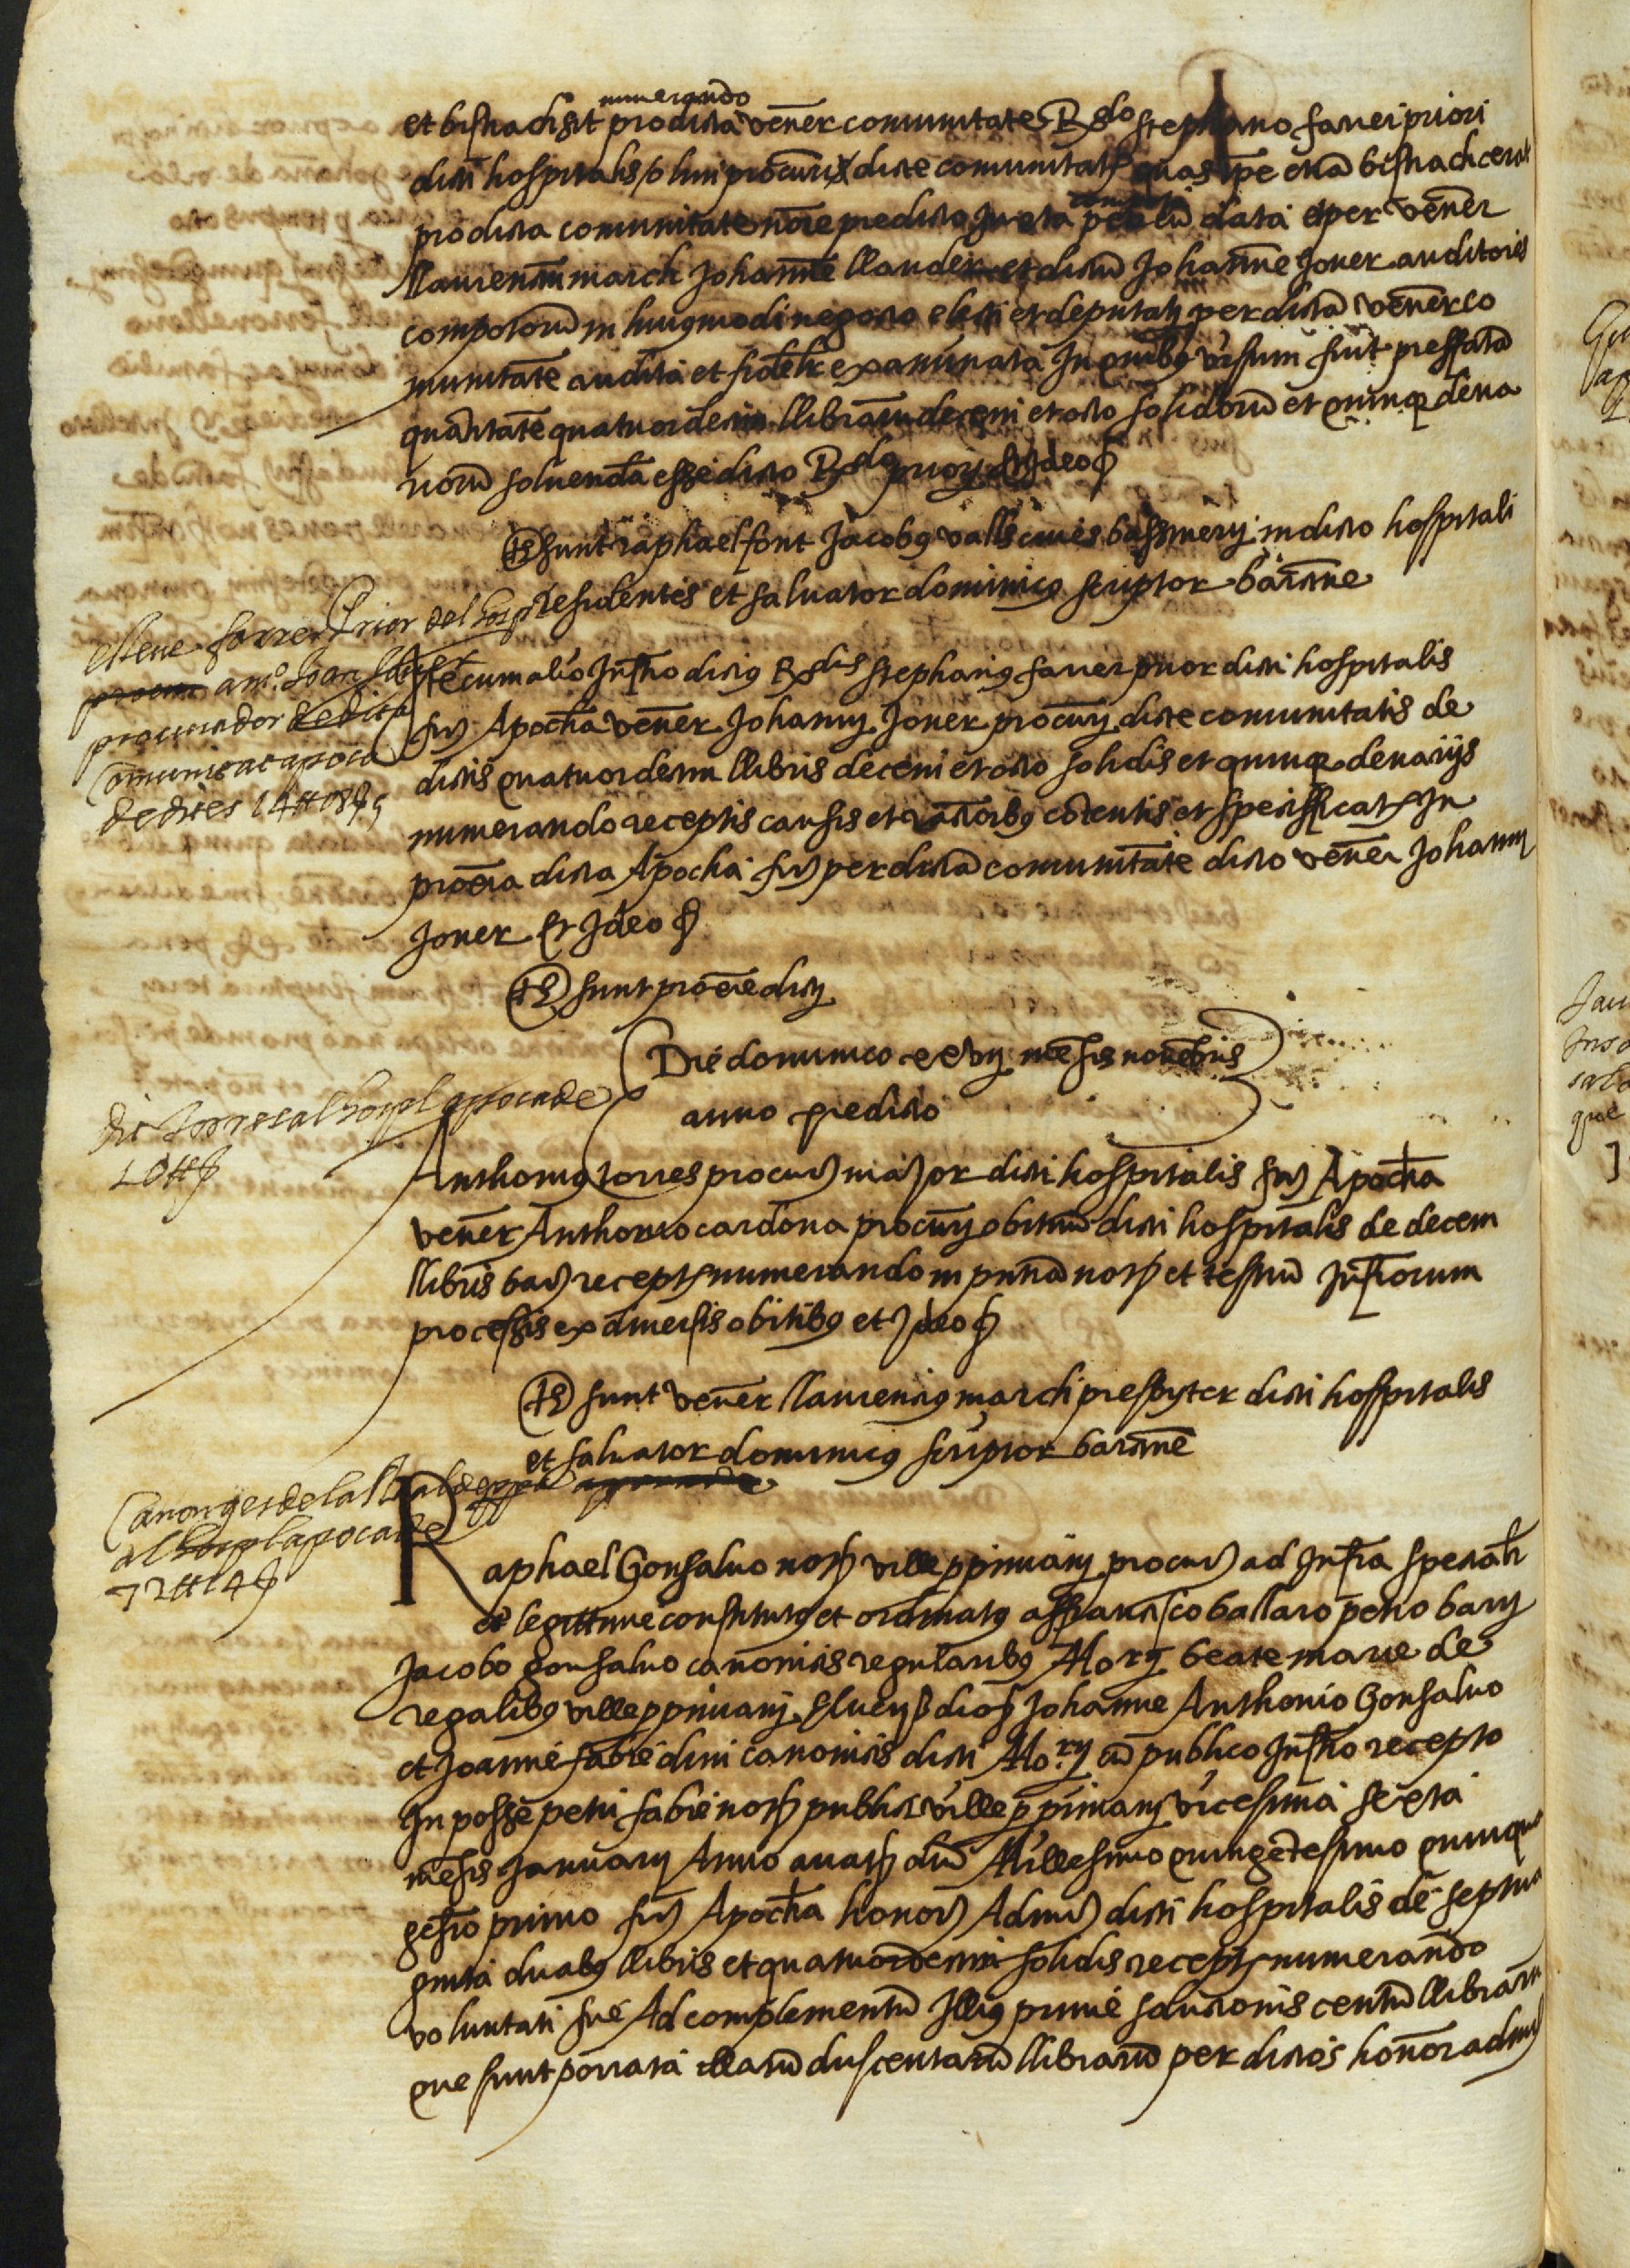 numerando
et bistradixit pro dicta vener comunitate Rdo stephano farrer priori
dicti hospitalis olim procuri dicte comunitatis quas ipe etia bistradicerat
pro dicta comunitate noie predicto Juxta compota per eu data et per vener
llaurenciu march Johanne llauder et dictu Johanne Joner auditores
compotoru in huiusmodi negocio electi et deputatz per dicta vener co
munitate audita et fidelr examinata In quibus visum fuit preffata
quantitate quatuordecim llibraru decem et octo solidoru et quinq dena
rioru soluenda esse dicto Rdo priori Et Ideo
Ts sunt raphael font Jacobus valls cives bassinerij in dicto hospitali
residentes et saluator dominicus scriptor barcine
esteve farrer Prior del hospl
procur am.º Joan Joner
procurador de dita
Comunitat apoca
de dites 14 ll 18 s 5
Item cum alio Instro dictus Rdus stephanus farrer prior dicti hospitalis
fir Apocha vener Johannj Joner procurj dicte comunitatis de
dictis quatuordecim llibris decem et octo solidis et quinq denarijs
numerando receptis causis et racionibus cotentis et specifficatz In
proxia dicta Apocha fir per dicta comunitate dicto vener Johannj
Joner Et Ideo
Ts sunt proxie dictj
Die dominico xxvij mesis novebris
anno predicto
dit Torres al hospl apoca de
10 ll s
Anthonius torres procur maior dicti hospitalis fir Apocha
vener Anthonio cardona procurj obituu dicti hospitalis de decem
llibris bar receptz numerando in pntia nots et testiu Infrorum
processis ex diversis obitibus et Ideo
Ts sunt vener llaurencius march presbyter dicti hospitalis
et saluator dominicus scriptor barcine
Canonges de la Real de ppa
al hospl apoca de
72 ll 14 s
Raphael Gonsaluo nots ville ppiniani procur ad Infra specialr
et legittime constitutus et ordinatus a ffrancisco ballaro petro barrj
Jacobo gonsaluo canonicis regularibus Morij beate marie de
regalibus ville ppiniani Johanne Anthonio Gonsaluo
et Joanne fabre dini canonicis dicti Morij cu publico Instro recepto
In posse petri fabre nots publici ville ppiniani vicesima sexta
mesis Januarij Anno a natz dni Millesimo quingetesimo quinqua
gesio primo fir Apocha honor Admir dicti hospitalis de septua
ginta duabus llibris et quatuordecim solidis receptz numerando
voluntati sue Ad complementu Illius prime solucionis centu llibraru
que sunt porrata illaru duscentaru llibraru per dictos honor admir